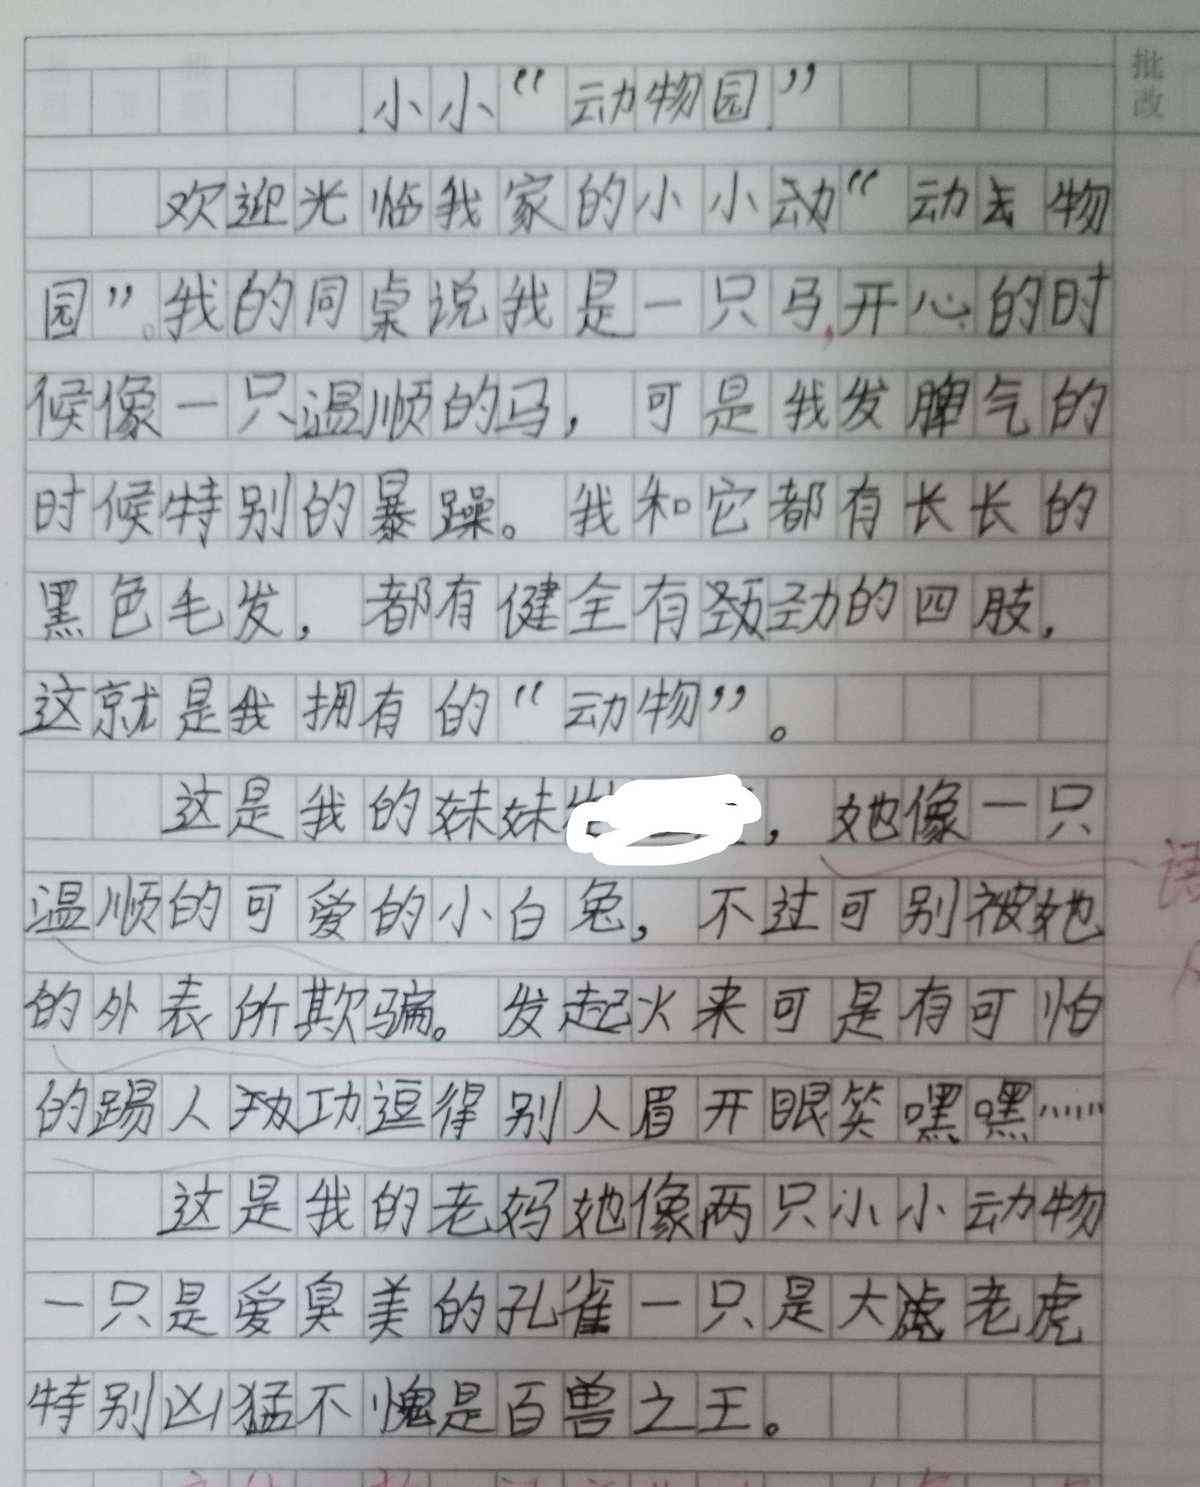 批改
小小“动物园”
欢迎光临我家的小小动“动去物
园”。我的同桌说我是一只马,开心的时
候像一只温顺的马，可是我发脾气的
时候特别的暴躁。我和它都有长长的
黑色毛发，都有健全有劲劲的四肢，
这就是我拥有的“动物”。
这是我的妹妹，她像一只
温顺的可爱的小白兔，不过可别被她
的外表所欺骗。发起火来可是有可怕
的踢人功逗得别人眉开眼笑嘿嘿……
这是我的老妈她像两只小小动物
一只是爱臭美的孔雀一只是大虎老虎
特别凶猛不愧是百兽之王。